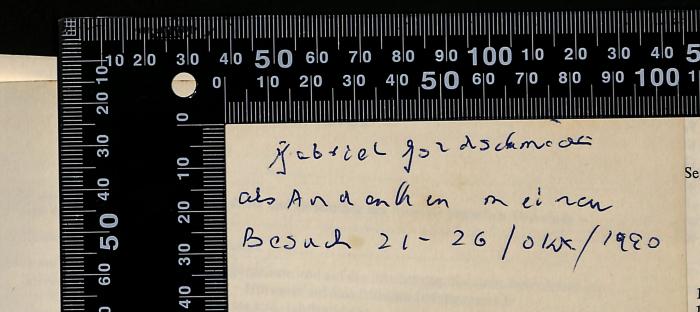 10 20 30 40 50 60 70 80 90 100 10 20 30 40 5
0 10 20 30 40 50 60 70 80 90 100 1
10 20 30 40 50 60
0 10 20 30 40
Gabriel Goldschmidt
als Andenken meinen
Besuch 21 - 26 / Okt / 1980
Se